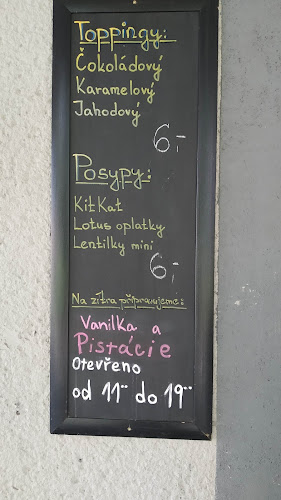 Toppingy:
Čokoládový
Karamelový
Jahodový
6,-
Posypy:
KitKat
Lotus oplatky
Lentilky mini
6,-
Na zítra připravujeme:
Vanilka a
Pistácie
Otevřeno
od 11°° do 19°°